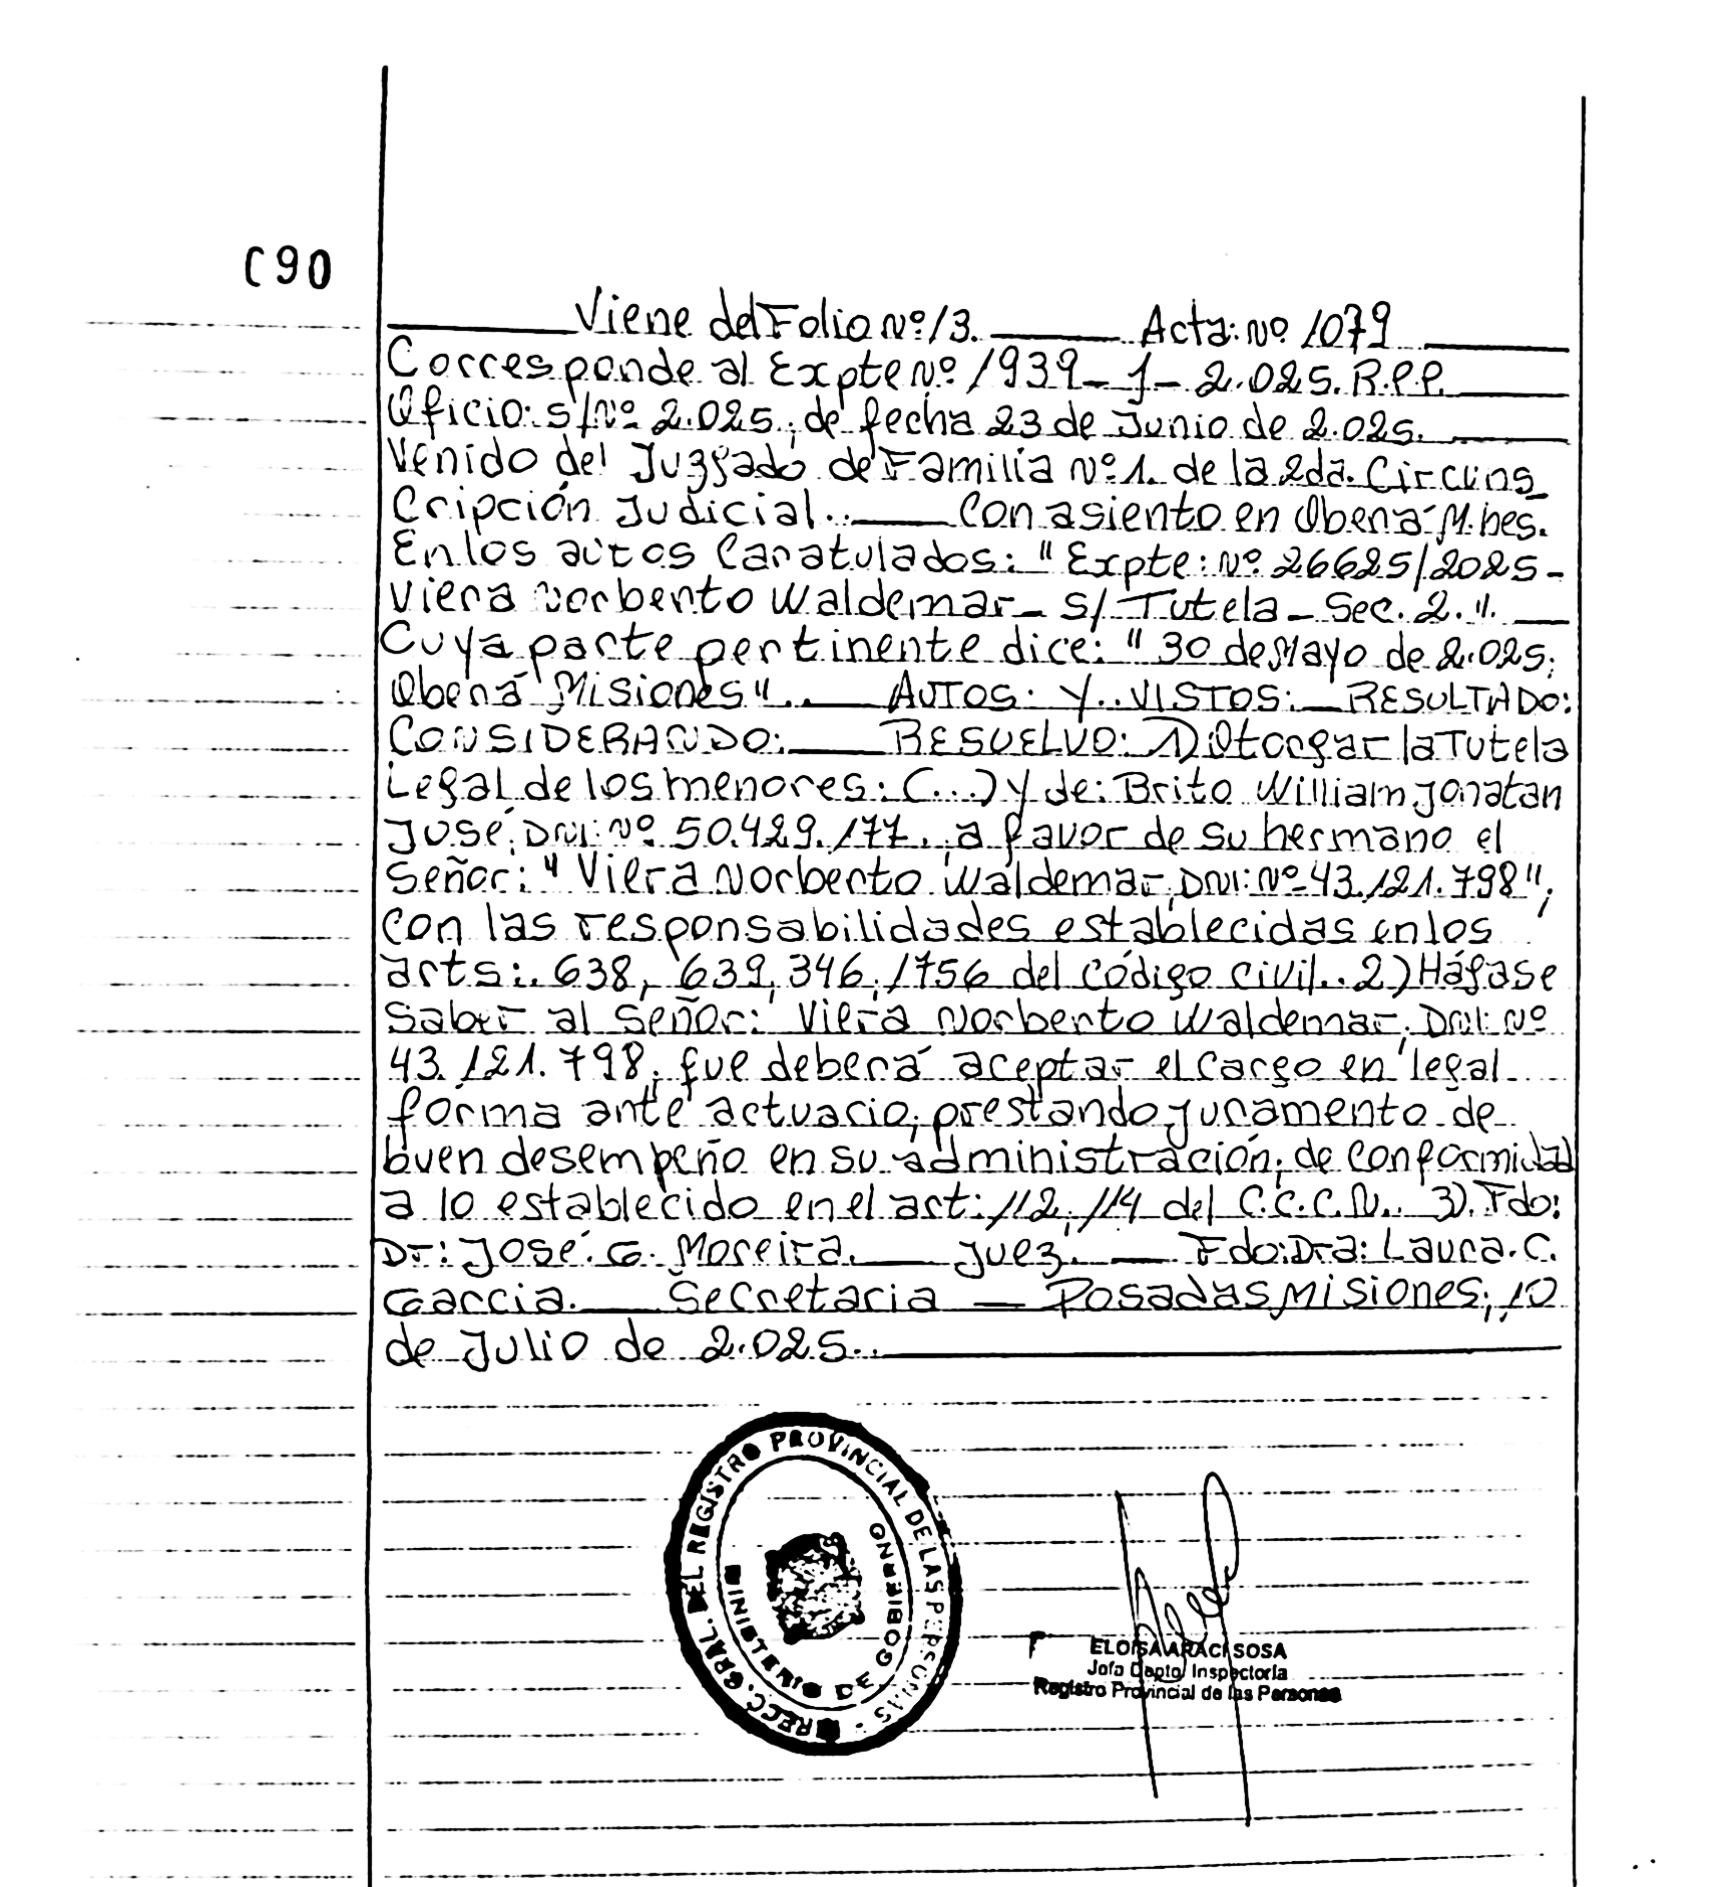 C90
Viene del Folio Nº 13. Acta: Nº 1079
Corresponde al Expte Nº 1939-J-2.025. R.P.P.
Oficio: S/Nº 2.025, de fecha 23 de Junio de 2.025.
Venido del Juzgado de Familia Nº 1. de la 2da. Circuns
cripción Judicial.. Con asiento en Oberá-Mnes.
En los autos Caratulados: "Expte: Nº 26625/2025-
Viera Norberto Waldemar- S/Tutela-Sec. 2.".
Cuya parte pertinente dice: "30 de Mayo de 2.025;
Oberá Misiones".. AUTOS: Y.. VISTOS: RESULTADO:
CONSIDERANDO: RESUELVO: 1) Otorgar la Tutela
Legal de los menores: (...) y de: Brito William Jonatan
José, DNI: Nº 50.429.177., a favor de su hermano el
Señor: "Viera Norberto Waldemar, DNI: Nº 43.121.798";
con las responsabilidades establecidas en los
arts:. 638, 639, 346, 1756 del código civil.. 2) Hágase
Saber al Señor: Viera Norberto Waldemar, DNI: Nº
43.121.798, que deberá aceptar el cargo en legal
forma ante actuacio, prestando juramento de
buen desempeño en su administración, de conformidad
a lo establecido en el art: 112, 114 del C.C.C.N.. 3). Fdo:
Dr: José. G. Moreira. Juez. Fdo: Dra: Laura. C.
Garcia. Secretaria — Posadas Misiones, 10
de Julio de 2.025..
DIRECC. GRAL. DEL REGISTRO PROVINCIAL DE LAS PERSONAS -
MINISTERIO DE GOBIERNO
ELOISA ARACI SOSA
Jefa Depto/ Inspectoría
Registro Provincial de las Personas